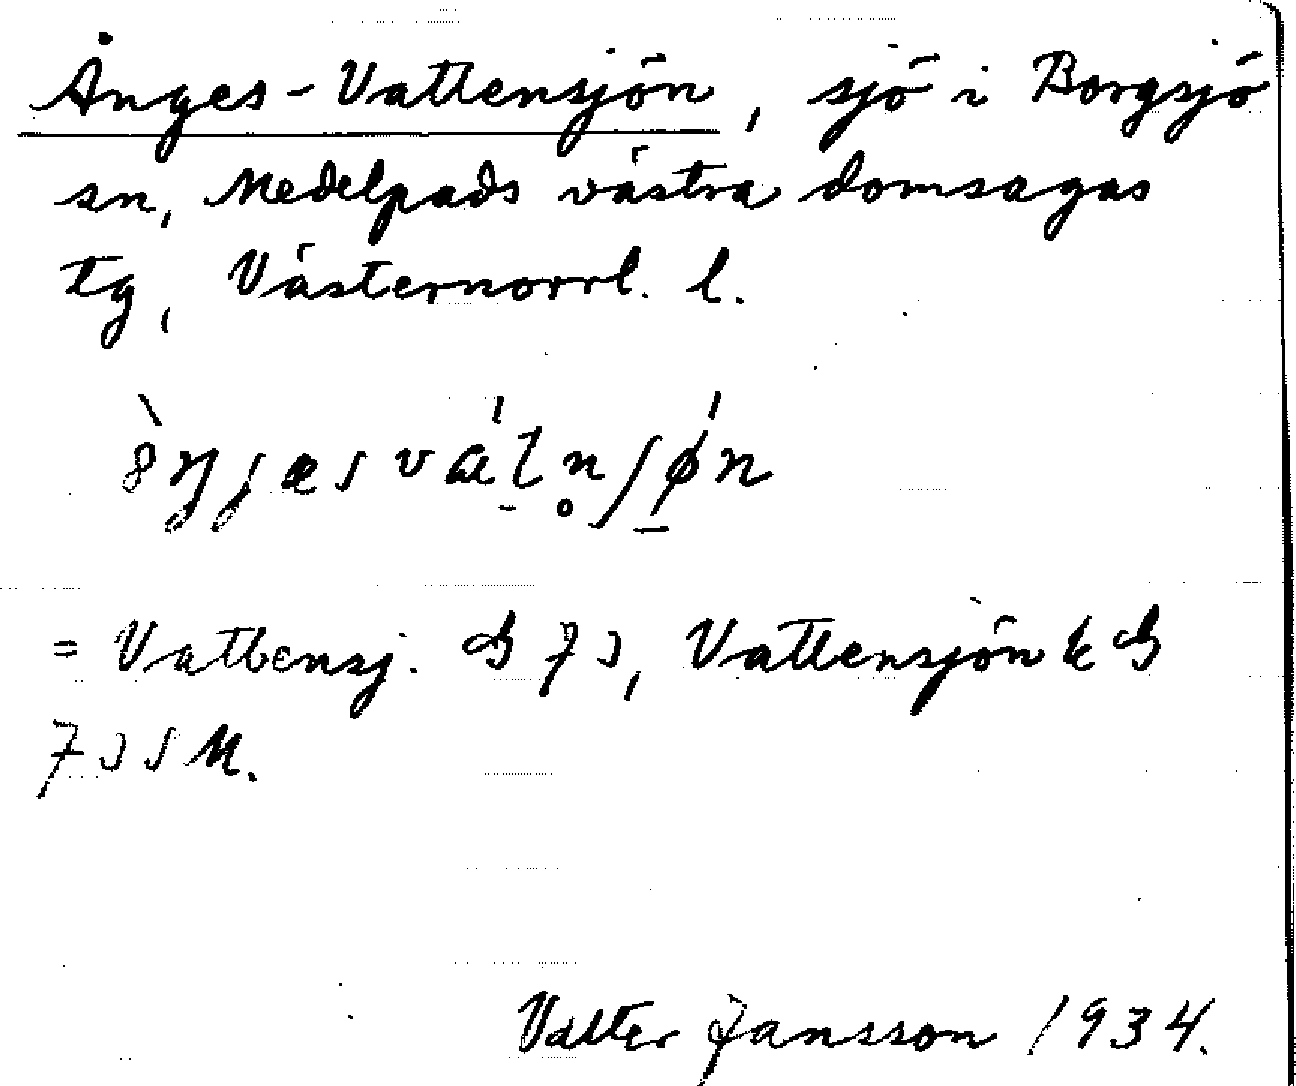 Ånges-Vattensjön, sjö i Borgsjö
sn, Medelpads västra domsagas
tg, Västernorrl. l.
= Vattensj.
Vattensjön k
Valter Jansson 1934.